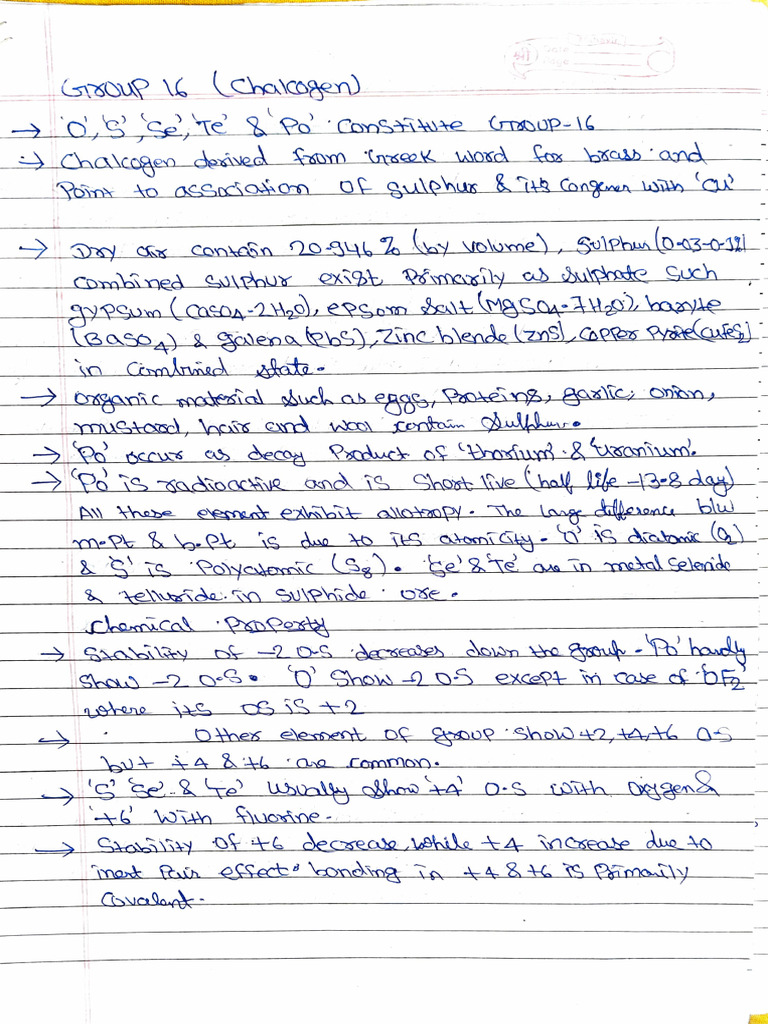 GROUP 16 (Chalcogen)
→ 'O', 'S', 'Se', 'Te' & 'Po' constitute GROUP-16
→ Chalcogen derived from Greek word for brass and
Point to association of sulphur & its congener with 'Cu'
→ Dry air contain 20.946% (by volume), Sulphur (0.03-0.1%)
combined sulphur exist primarily as sulphate such
gypsum (CaSO4.2H2O), epsom salt (MgSO4.7H2O), baryte
(BaSO4) & galena (PbS), Zinc blende (ZnS), copper Pyrite (CuFeS2)
in combined state.
→ organic material such as eggs, Proteins, garlic, onion,
mustard, hair and wool contain Sulphur.
→ 'Po' occur as decay Product of 'thorium' & 'Uranium'.
→ 'Po' is radioactive and is Short live (half life -13.8 day)
All these element exhibit allotropy. The large difference b/w
m.Pt & b.Pt is due to its atomicity. 'O' is diatomic (O2)
& 'S' is Polyatomic (S8). 'Se' & 'Te' are in metal selenide
& telluride in sulphide ore.
Chemical Property
→ Stability of -2 O.S decreases down the group. 'Po' hardly
show -2 O.S. 'O' Show -2 O.S except in case of 'OF2'
where its OS is +2
→ Other element of group show +2, +4, +6 O.S
but +4 & +6 are common.
→ 'S' 'Se' & 'Te' usually show '+4' O.S with oxygen &
'+6' with fluorine.
→ Stability of +6 decrease, while +4 increase due to
inert Pair effect. bonding in +4 & +6 is Primarily
covalent.